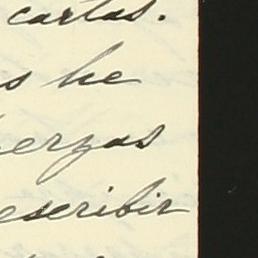 cartas.
s he
erzas
escribir